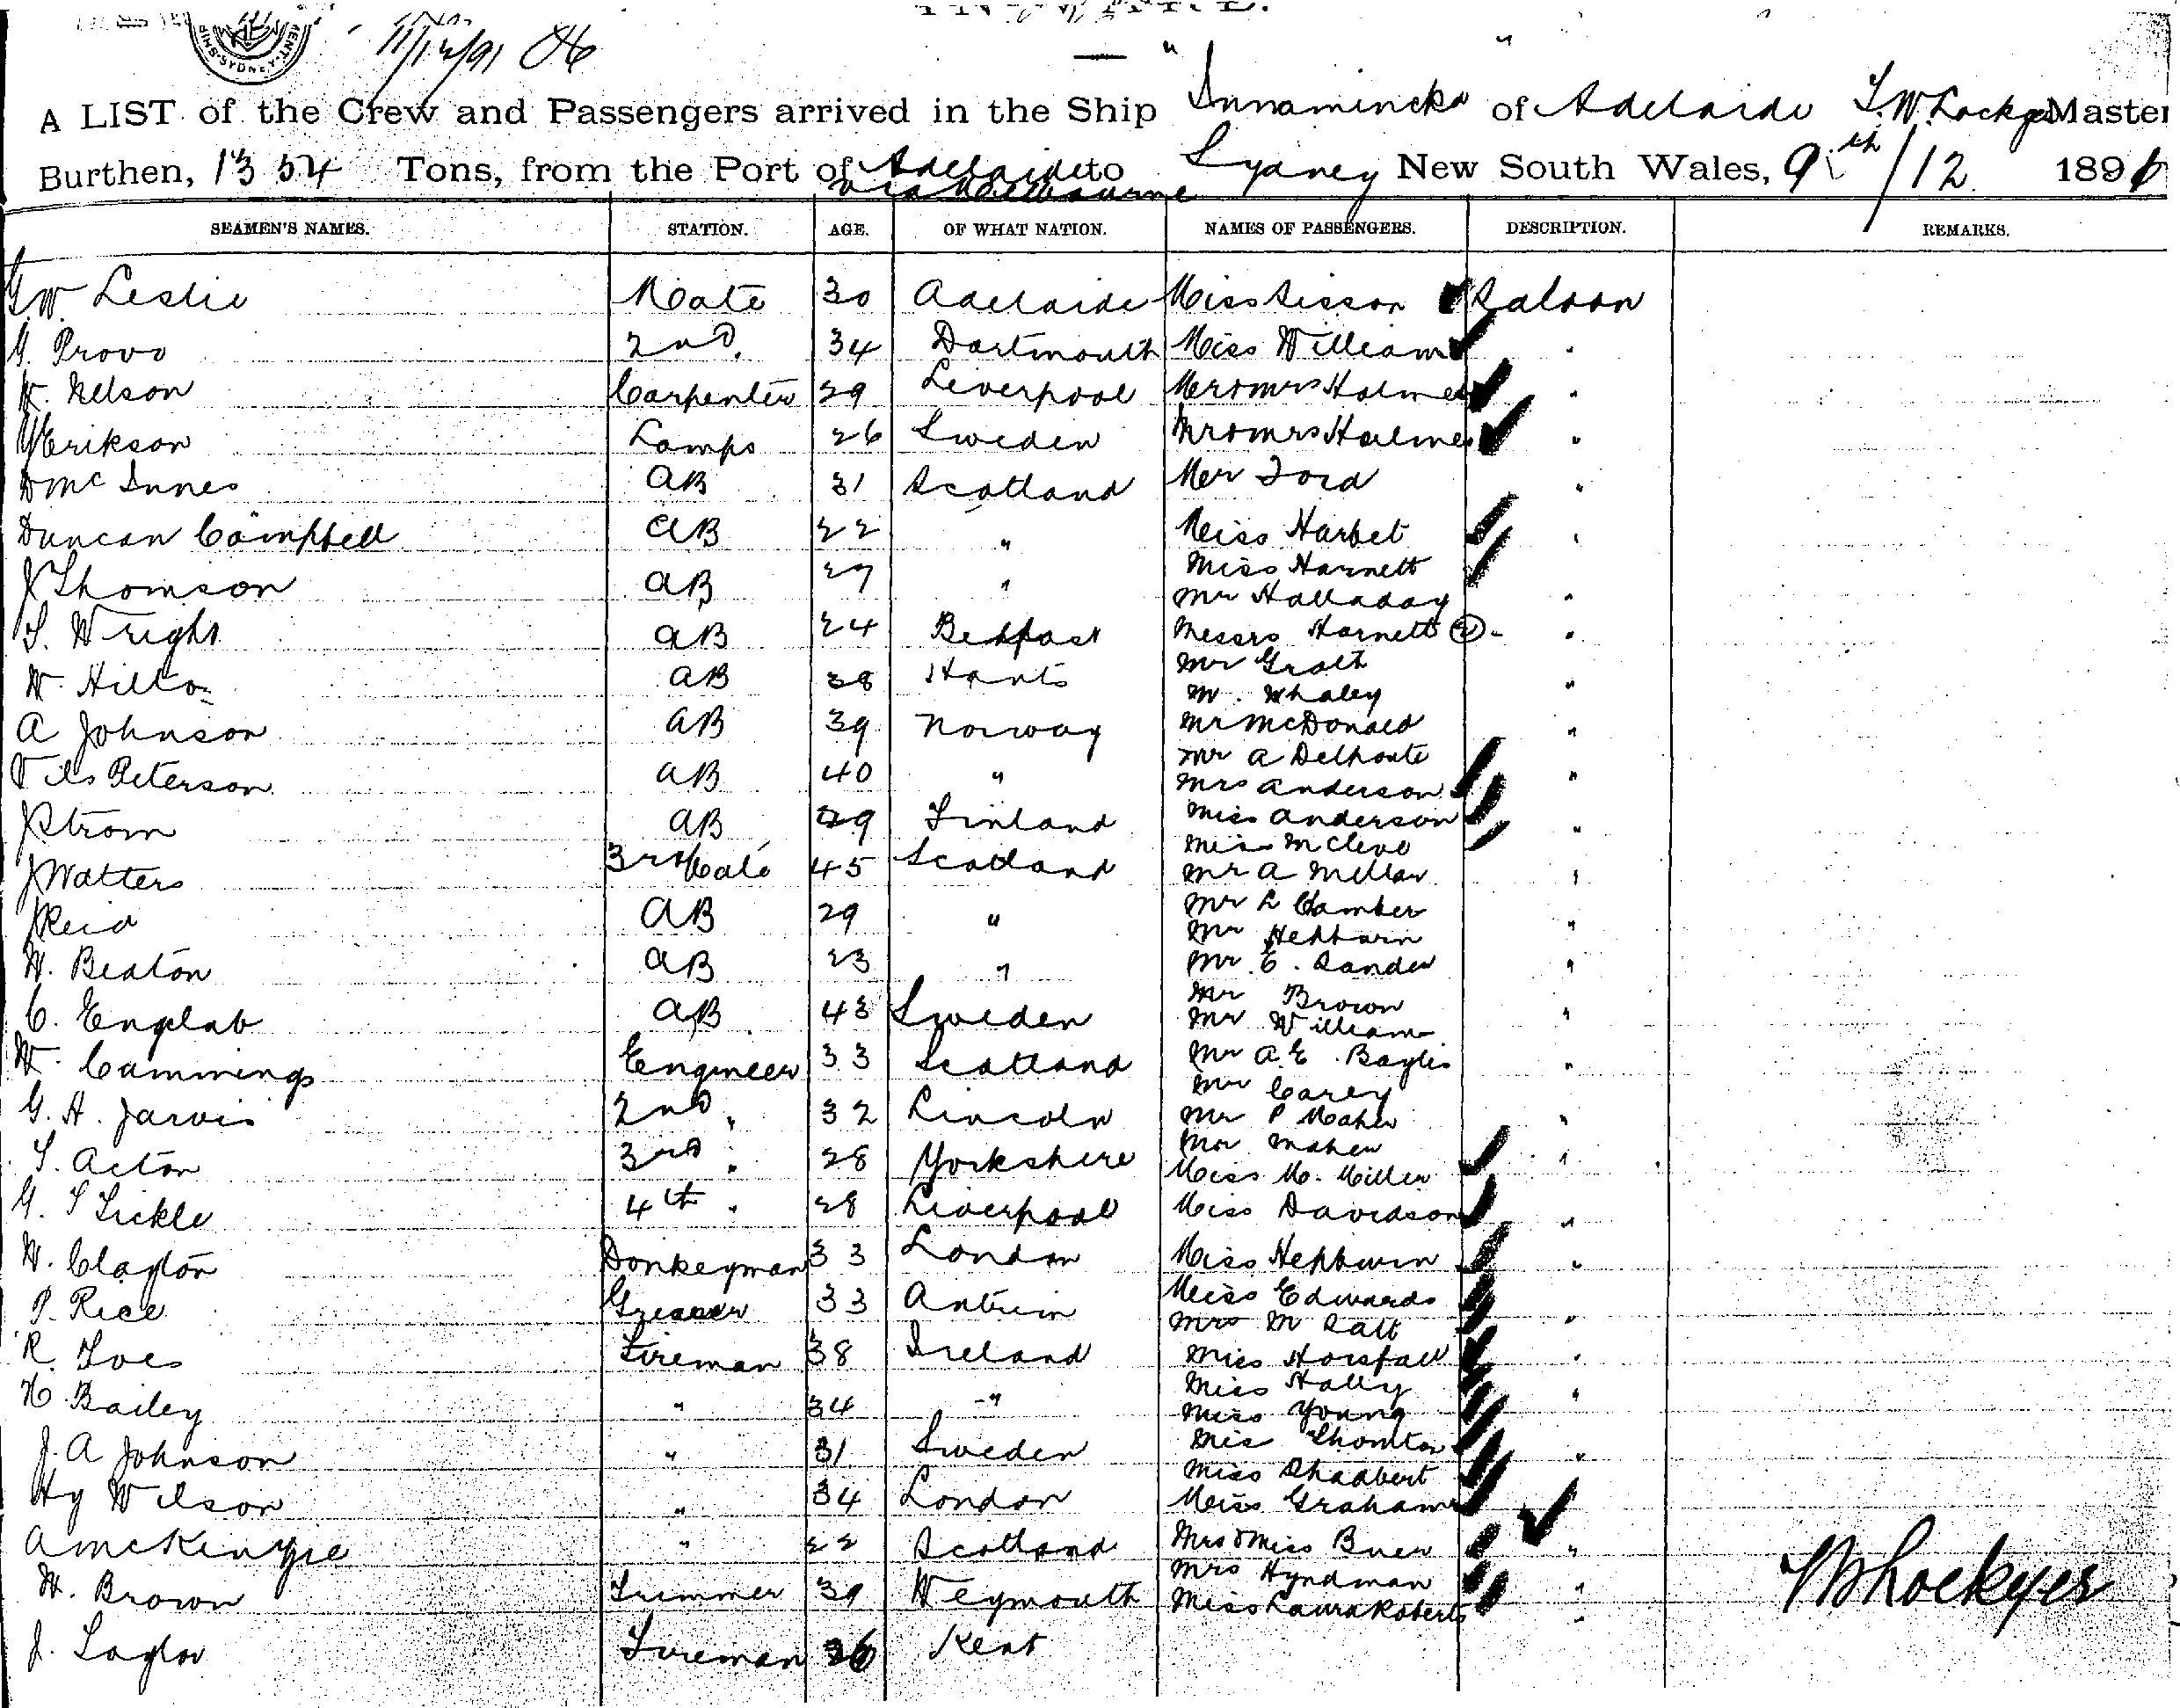 11/12/91
A LIST of the Crew and Passengers arrived in the Ship "Innamincka" of Adelaide T.W. Lockyer Master
Burthen, 1354 Tons, from the Port of Adelaide to Sydney New South Wales, 9th/12 189
via Melbourne
SEAMEN'S NAMES. STATION. AGE. OF WHAT NATION. NAMES OF PASSENGERS. DESCRIPTION. REMARKS.
G.W. Leslie Mate 30 Adelaide Miss Sisson Saloon
G. Provo 2nd. 34 Dartmouth Miss William "
W. Nelson Carpenter 29 Liverpool Mr & Mrs Holmes "
Erikson Lamps 26 Sweden Mr & Mrs Holmes "
D McInnes AB 31 Scotland Mr Ford "
Duncan Campbell AB 22 " Miss Harbet "
J Thomson AB 27 " Miss Harnett
Mr Halladay "
T. Wright AB 24 Belfast Messrs Harnett (2) "
W. Hilton AB 38 Hants Mr Groth
M. Whaley "
A Johnson AB 39 Norway Mr McDonald "
Nils Peterson AB 40 " Mr A Delhoste
Mrs Anderson "
J Strom AB 29 Finland Miss Anderson
Miss McCleve "
J Watters 3rd Mate 45 Scotland Mr A Mellar "
J Reid AB 29 " Mr L Camber
Mr Hepburn "
W. Beaton AB 23 " Mr E. Sander "
C. Englab AB 43 Sweden Mr Brown
Mr William "
W. Cammings Engineer 33 Scotland Mr A.E. Baylis
Mr Carey "
G. H. Jarvis 2nd " 32 Lincoln Mr P Maher "
T. Acton 3rd " 28 Yorkshire Mr Maher
Miss M. Miller "
G. T Tickle 4th " 28 Liverpool Miss Davidson "
W. Clayton Donkeyman 33 London Miss Hepburn "
P. Rice Greaser 33 Antrim Miss Edwards
Mrs M Salt "
R. Foes Fireman 38 Ireland Miss Horsfall "
H. Bailey " 34 " Miss Hally
Miss Young "
J. A Johnson " 31 Sweden Miss Thornton "
Hy Wilson " 34 London Miss Shadbert
Miss Graham
A McKinzie " 22 Scotland Mrs & Miss Buer "
W. Brown Trimmer 39 Weymouth Mrs Hyndman "
Miss Laura Roberts "
J. Taylor Fireman 26 Kent
TW Lockyer